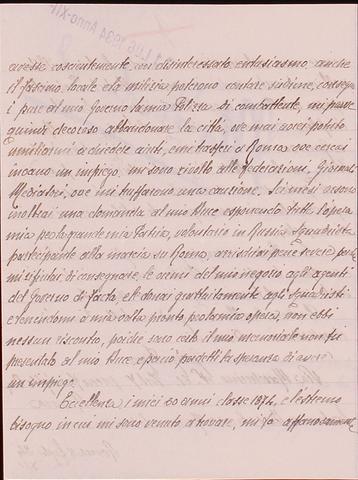 LUG 1934 Anno XII
avesse coscientemente, con disinteressato entusiasmo anche
il fascismo locale e la milizia poterono contare su di me, consegn
i pure al mio Governo la mia Polizza di combattente, mi parve
quindi decoroso abbandonare la città, ove mai avrei potuto
umiliarmi a chiedere aiuti, e mi trasferii a Roma ove cercai
invano un impiego, mi sono rivolto alle federazioni, Giornali
Mediatori, ove mi truffarono una cauzione. Sei mesi or sono
inoltrai una domanda al mio Duce esponendo tutta l'opera
mia per la grande mia Patria, volontario in Russia Squadrista
partecipante alla marcia su Roma, arrischiai pene severe per
mi rifiutai di consegnare le armi del mio negozio agli agenti
del Governo di facto, e le donai gratuitamente agli squadristi
e tenendomi a mia volta pronto per la mia opera, non ebbi
nessun riscontro, poiché sono certo il mio memoriale non fu
presentato al mio Duce, e perciò perdetti la speranza di avere
un impiego.
Eccellenza i miei 60 anni classe 1874, e l'estremo
bisogno in cui mi sono venuto a trovare, mi fa affannosamente